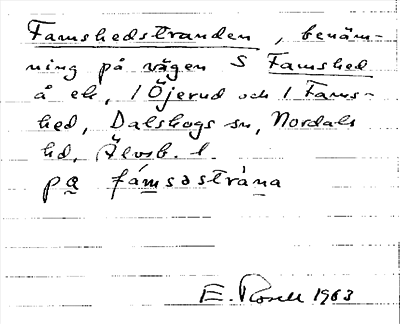 Famshedstranden, benäm-
ning på vägen S Famshed
å ek, 1 Öjerud och 1 Fams-
hed, Dalskogs sn, Nordals
hd, Älvsb. l.
på fámsəstràna
E. Rosell 1963